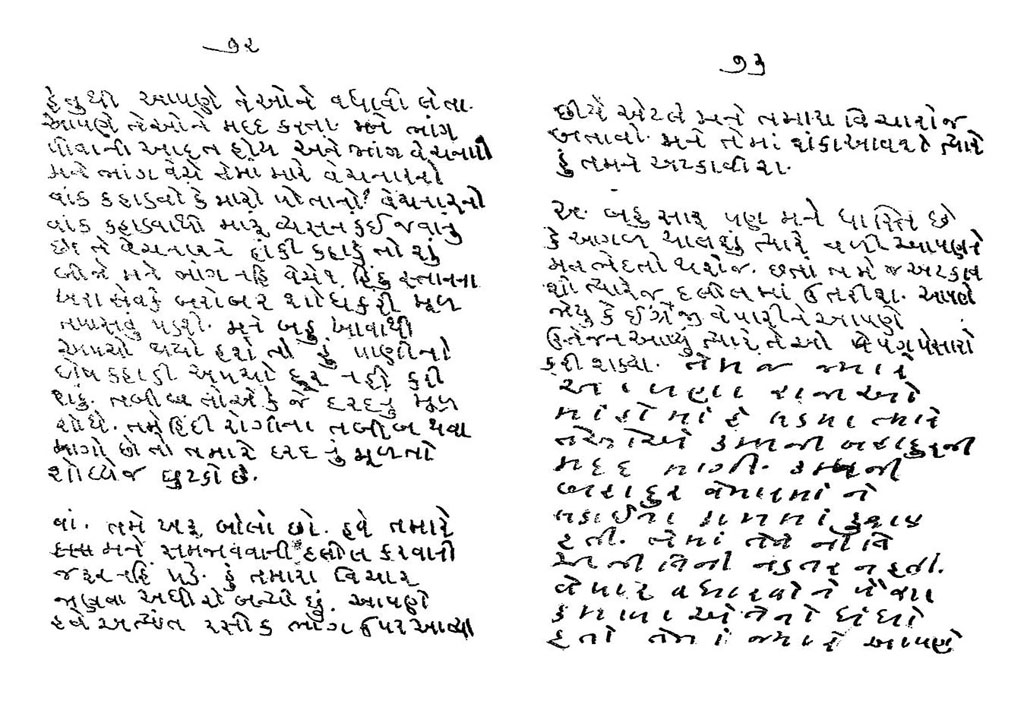 ૭૨
હેતુથી આપણે તેઓને વધાવી લેતા.
આપણે તેઓને મદદ કરતા. મને ભાંગ
પીવાની આદત હોય અને ભાંગ વેચનારો
મને ભાંગ વેચે તેમાં મારે વેચનારનો
વાંક કહાડવો કે મારો પોતાનો? વેચનારનો
વાંક કહાડવાથી મારૂં વ્યસન કંઈ જવાનું
છે? તે વેચનારને હાંકી કહાડું તો શું
બીજો મને ભાંગ નહિ વેચે? હિંદુસ્તાનના
ખરા સેવકે બરોબર શોધ કરી મૂળ
તપાસવું પડશે. મને બહુ ખાવાથી
અપચો થયો હશે તો હું પાણીનો
દોષ કહાડી અપચો દૂર નહીં કરી
શકું. તબીબ તો એ કે જે દરદનું મૂળ
શોધે. તમે હિંદી રોગીના તબીબ થવા
માગો છો તો તમારે દરદનું મૂળ તો
શોધ્યેજ છુટકો છે.
વાં. તમે ખરૂં બોલો છો. હવે તમારે
મને સમજાવવાની દલીલ કરવાની
જરૂર નહિ પડે. હું તમારા વિચાર
જાણવા અધીરો બન્યો છું. આપણે
હવે અત્યંત રસીક ભાગ ઉપર આવ્યા
૭૩
છીયે એટલે મને તમારા વિચારોજ
બતાવો. મને તેમાં શંકા આવશે ત્યારે
હું તમને અટકાવીશ.
અ. બહુ સારૂ પણ મને ધાસ્તિ છે
કે આગળ ચાલશું ત્યારે વળી આપણને
મત ભેદ તો થશેજ. છતાં તમે જ્યારે અટકાવ
શો ત્યારેજ દલીલમાં ઉતરીશ. આપણે
જોયું કે ઈંગ્રેજી વેપારીને આપણે
ઉત્તેજન આપ્યું ત્યારે તેઓ પગપેસારો
કરી શક્યા. તેમજ જ્યારે
આપણા રાજાઓ
માંહોમાંહે લડયા ત્યારે
તેઓએ કંપની બહાદુરની
મદદ માગી. કંપની
બહાદુર વેપારમાં ને
લડાઈના કામમાં કુશળ
હતી. તેમાં તેને નીતિ
અનીતિની નડતર ન હતી.
વેપાર વધારવો ને પૈસા
કમાવા એ તેનો ધંધો
હતો તેમાં જ્યારે આપણે